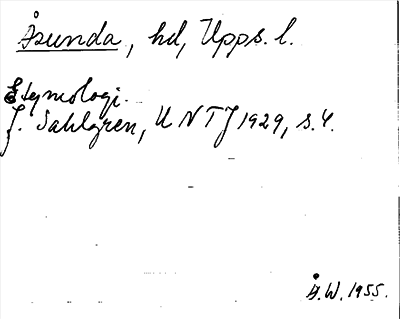 Åsunda, hd, Upps. l.
Etymologi.
J. Sahlgren, UNTJ 1929, s. 4.
Å.W. 1955.